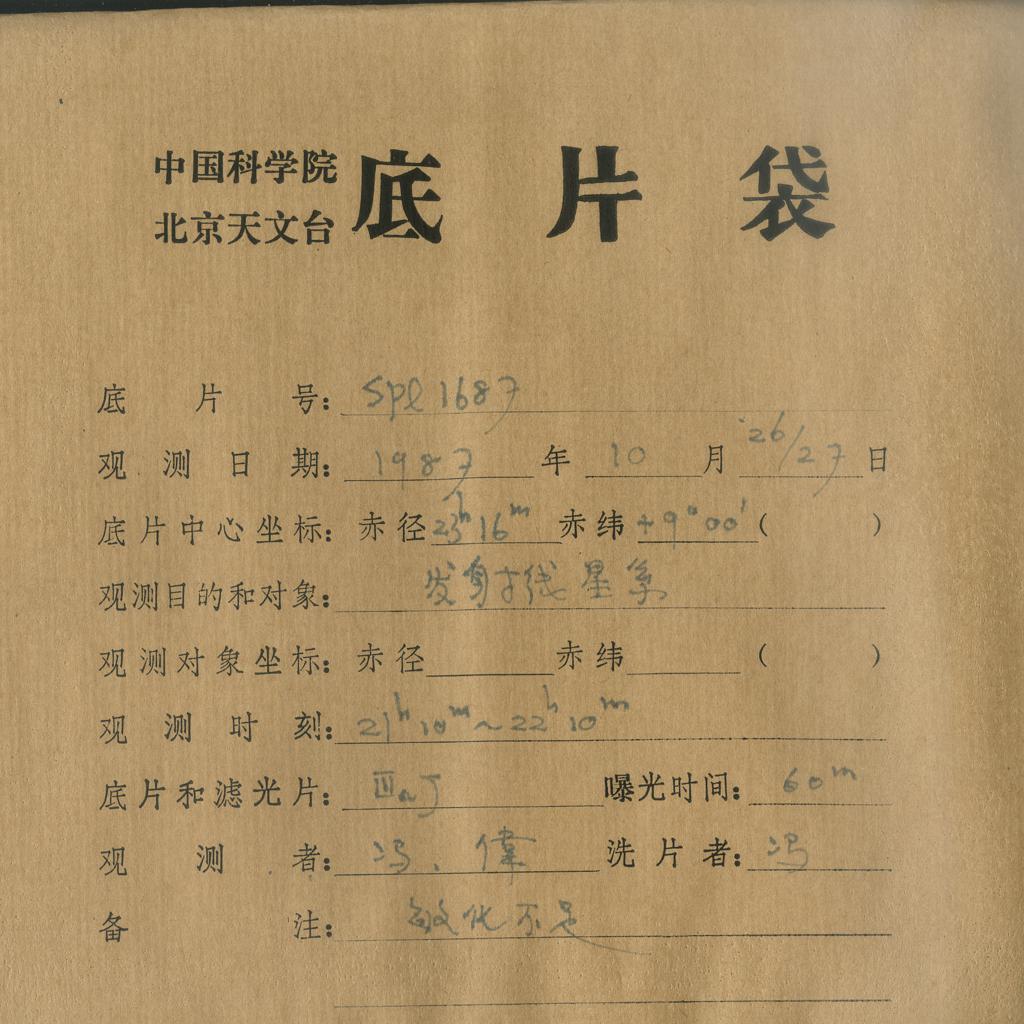 中国科学院
北京天文台
底片袋
底片号: Spl 1687
观测日期: 1987年 10月 26/27日
底片中心坐标: 赤径 23h 16m 赤纬 +9°00′ ( )
观测目的和对象: 发射线星系
观测对象坐标: 赤径 赤纬 ( )
观测时刻: 21h 10m ~ 22h 10m
底片和滤光片: ⅢaJ 曝光时间: 60m
观测者: 冯、偉 洗片者: 冯
备注: 敏化不足